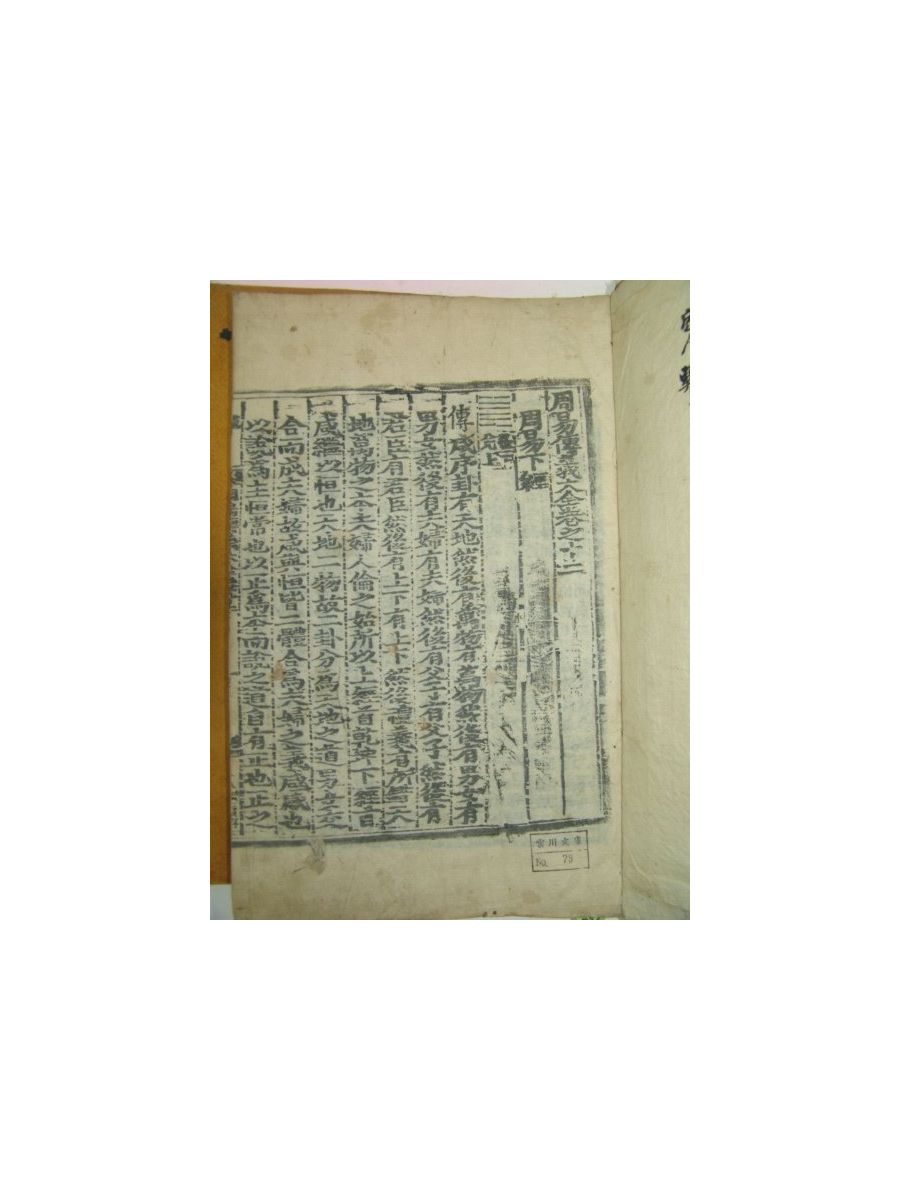 周易傳義大全卷之十二
周易下經
艮下
兌上
傳咸序卦有天地然後有萬物有萬物然後有男女有
男女然後有夫婦有夫婦然後有父子有父子然後有
君臣有君臣然後有上下有上下然後禮義有所錯天
地萬物之本夫婦人倫之始所以上經首乾坤下經首
咸繼以恒也天地二物故二卦分爲天地之道男女交
合而成夫婦故咸與恒皆二體合爲夫婦之義咸感也
以說爲主恒常也以正爲本而說之道自有正也正之
雲川文庫
No. 79